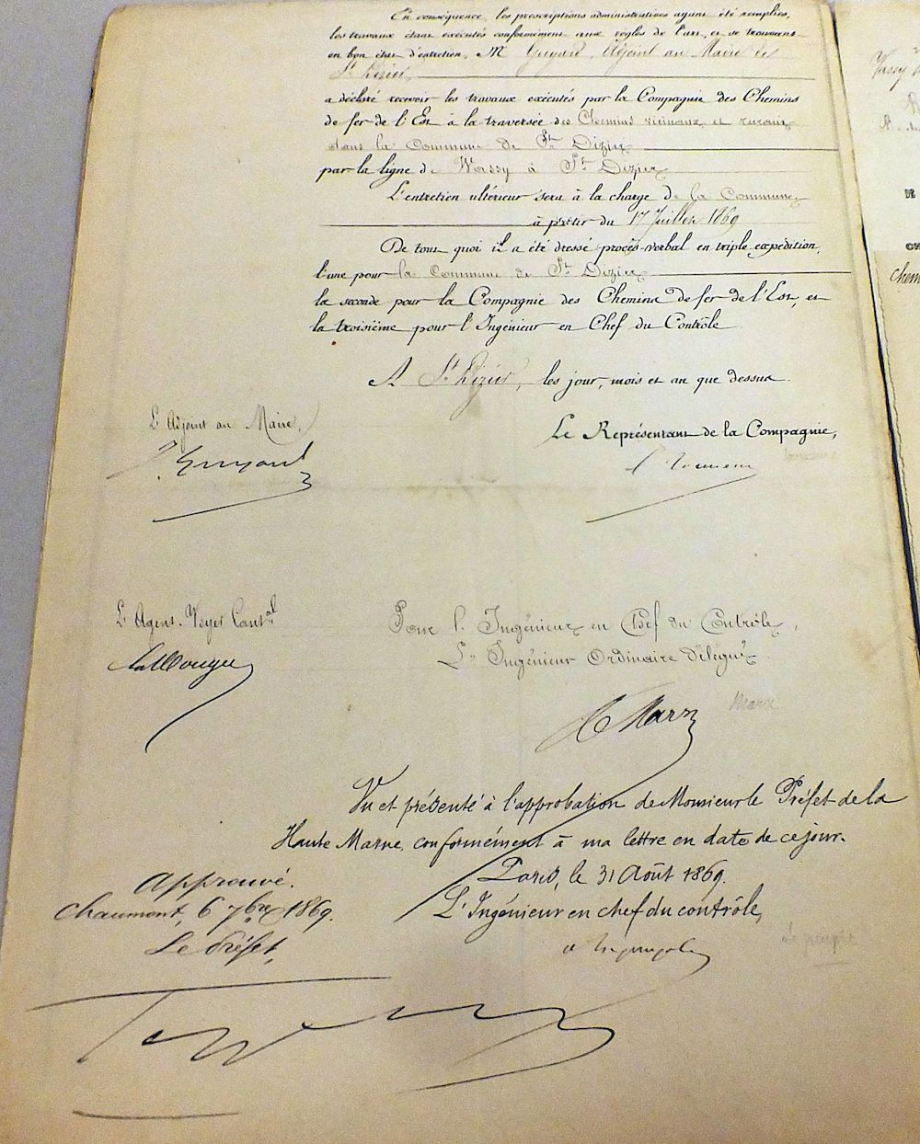 En conséquence, les prescriptions administratives ayant été remplies,
les travaux étant exécutés conformément aux règles de l'art et se trouvant
en bon état d'entretien, M Guyard, Adjoint au Maire de
St Dizier,
a déclaré recevoir les travaux exécutés par la Compagnie des Chemins
de fer de l'Est à la traversée des Chemins vicinaux et ruraux
dans la Commune de St Dizier
par la ligne de Wassy à St Dizier
L'entretien ultérieur sera à la charge de la Commune
à partir du 17 Juillet 1869
De tout quoi il a été dressé procès-verbal en triple expédition,
l'une pour la Commune de St Dizier
la seconde pour la Compagnie des Chemins de fer de l'Est, et
la troisième pour l'Ingénieur en Chef du Contrôle
A St Dizier, les jour, mois et an que dessus.
L'Adjoint au Maire,
Guyard
Le Représentant de la Compagnie,
L'Agent-Voyer Cantal
Pour l'Ingénieur en Chef du Contrôle,
L'Ingénieur Ordinaire délégué
Marx
Marx
Vu et présenté à l'approbation de Monsieur le Préfet de la
Haute Marne, conformément à ma lettre en date de ce jour.
Paris, le 31 Août 1869.
L'Ingénieur en chef du contrôle,
Approuvé.
Chaumont, 6 7bre 1869.
Le Préfet,
Vassy
chem